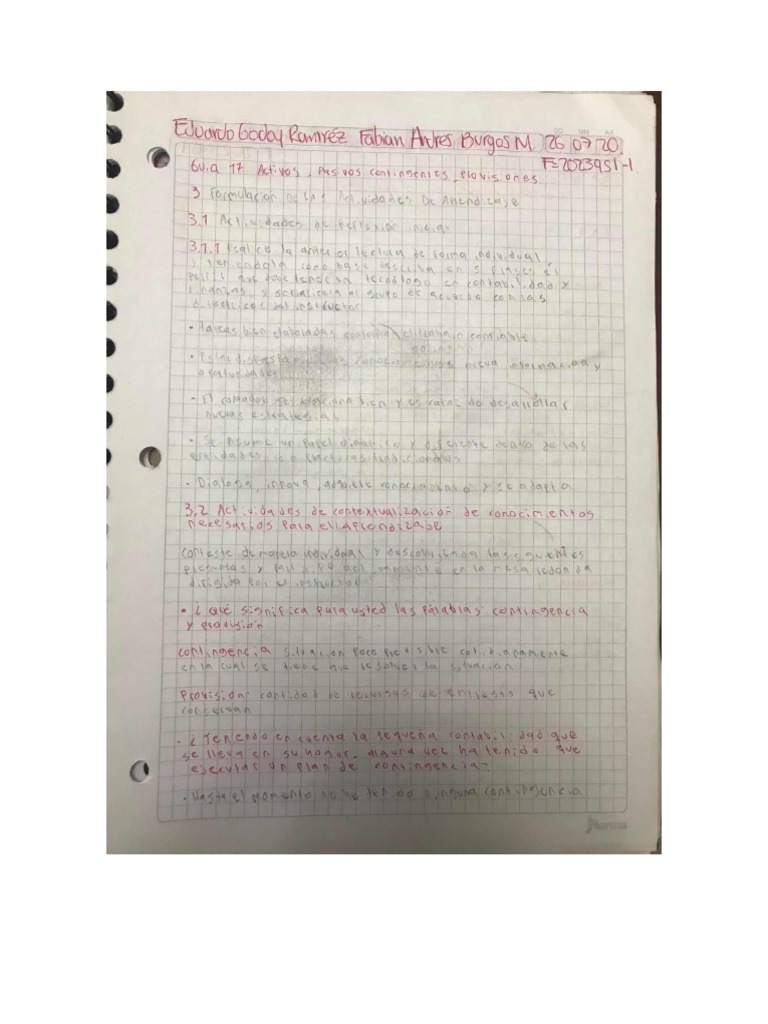 Eduardo Godoy Ramiréz Fabian Andres Burgos M. 26 07 20
F=2023951-1
Guia 17 Activos, Pasivos contingentes, Provisiones
3 Formulacion De Las Actividades De Aprendizaje
3.1 Actividades de Reflexion inicial
3.1.1 Realice la anterior lectura de forma individual
y teniendola como base escriba en 5 el
perfil que debe tener un tecnólogo en contabilidad y
finanzas y socialicela al grupo de acuerdo con las
directrices del instructor
• tareas bien elaboradas conforman el trabajo contable
• nueva informacion y
oportunidades
• El contador se relaciona bien y es capaz de desarrollar
nuevas estrategias
• Se asume un papel dinamico y diferente dentro de las
entidades practicas tradicionales
• Dialoga, innova, adquiere conocimiento y se adapta
3.2 Actividades de contextualización de conocimientos
necesarios para el Aprendizaje
conteste de manera individual y las siguientes
preguntas y participe en la mesa redonda
dirigida por el instructor
• ¿ qué significa para usted las palabras contingencia
y provisión
contingencia situacion poco previsible cotidianamente
en la cual se tiene que resolver la situacion
Provision: cantidad de recursos de empresas que
conservan
• ¿ Teniendo en cuenta la pequeña contabilidad que
se lleva en su hogar, alguna vez ha tenido que
ejecutar un plan de contingencia?
• Hasta el momento no he tenido ninguna contingencia
norma